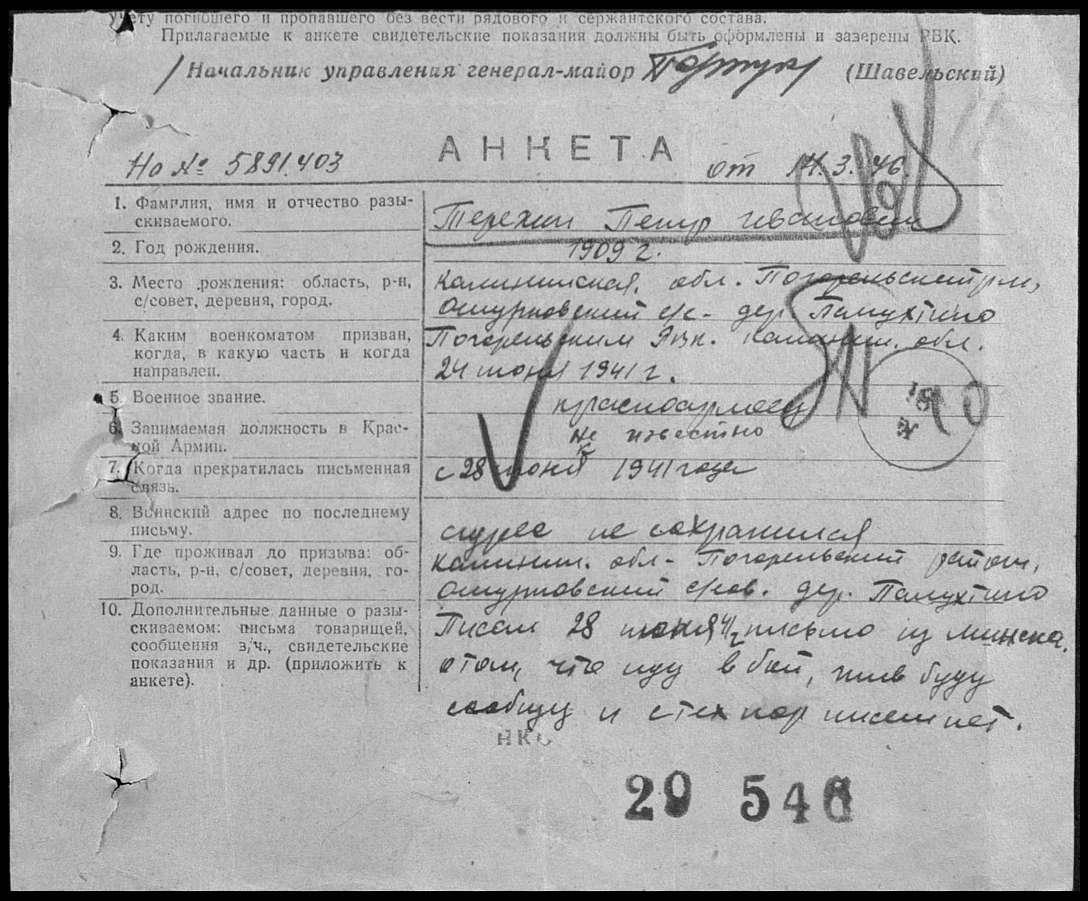 учету погибшего и пропавшего без вести рядового и сержантского состава.
Прилагаемые к анкете свидетельские показания должны быть оформлены и заверены РВК.
Начальник управления генерал-майор (Шавельский)
АНКЕТА
На № 5891403 от 14.3.46.
1. Фамилия, имя и отчество разы-
скиваемого.
Терехин Петр Иванович
2. Год рождения.
1909 г.
3. Место рождения: область, р-н,
с/совет, деревня, город.
Калининская, обл. Погорельский р-н,
Ошурковский с/с- дер
4. Каким военкоматом призван,
когда, в какую часть и когда
направлен.
Погорельским РВК. Калинин. обл.
24 июня 1941 г.
5. Военное звание.
красноармеец
6. Занимаемая должность в Крас-
ной Армии.
не известно
7. Когда прекратилась письменная
связь.
с 28 июня 1941 года
8. Воинский адрес по последнему
письму.
адрес не сохранился
9. Где проживал до призыва: об-
ласть, р-н, с/совет, деревня, го-
род.
Калинин. обл- Погорельский район,
Ошурковский с/сов. дер.
10. Дополнительные данные о разы-
скиваемом: письма товарищей,
сообщения в/ч., свидетельские
показания и др. (приложить к
анкете).
Писал 28 июня 41 г письмо из Минска.
о том, что иду в бой, жив буду
сообщу и с тех пор писем нет.
НКО
20 546